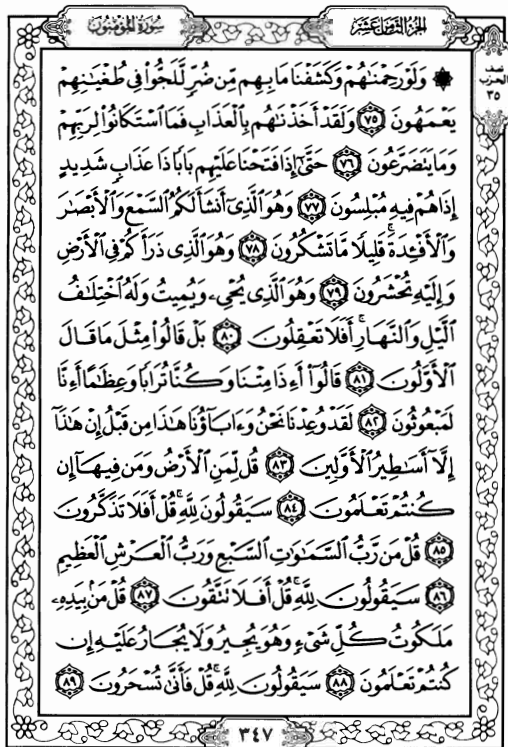 سُورَةُ المُؤْمِنُون
الجُزْءُ الثَّامِنَ عَشَرَ
نصف
الحزب
٣٥
۞ وَلَوْ رَحِمْنَٰهُمْ وَكَشَفْنَا مَا بِهِم مِّن ضُرٍّ لَّلَجُّوا۟ فِى طُغْيَٰنِهِمْ
يَعْمَهُونَ ٧٥ وَلَقَدْ أَخَذْنَٰهُم بِٱلْعَذَابِ فَمَا ٱسْتَكَانُوا۟ لِرَبِّهِمْ
وَمَا يَتَضَرَّعُونَ ٧٦ حَتَّىٰٓ إِذَا فَتَحْنَا عَلَيْهِم بَابًا ذَا عَذَابٍ شَدِيدٍ
إِذَا هُمْ فِيهِ مُبْلِسُونَ ٧٧ وَهُوَ ٱلَّذِىٓ أَنشَأَ لَكُمُ ٱلسَّمْعَ وَٱلْأَبْصَٰرَ
وَٱلْأَفْـِٔدَةَ ۚ قَلِيلًا مَّا تَشْكُرُونَ ٧٨ وَهُوَ ٱلَّذِى ذَرَأَكُمْ فِى ٱلْأَرْضِ
وَإِلَيْهِ تُحْشَرُونَ ٧٩ وَهُوَ ٱلَّذِى يُحْىِۦ وَيُمِيتُ وَلَهُ ٱخْتِلَٰفُ
ٱلَّيْلِ وَٱلنَّهَارِ ۚ أَفَلَا تَعْقِلُونَ ٨٠ بَلْ قَالُوا۟ مِثْلَ مَا قَالَ
ٱلْأَوَّلُونَ ٨١ قَالُوٓا۟ أَءِذَا مِتْنَا وَكُنَّا تُرَابًا وَعِظَٰمًا أَءِنَّا
لَمَبْعُوثُونَ ٨٢ لَقَدْ وُعِدْنَا نَحْنُ وَءَابَآؤُنَا هَٰذَا مِن قَبْلُ إِنْ هَٰذَآ
إِلَّآ أَسَٰطِيرُ ٱلْأَوَّلِينَ ٨٣ قُل لِّمَنِ ٱلْأَرْضُ وَمَن فِيهَآ إِن
كُنتُمْ تَعْلَمُونَ ٨٤ سَيَقُولُونَ لِلَّهِ ۚ قُلْ أَفَلَا تَذَكَّرُونَ
٨٥ قُلْ مَن رَّبُّ ٱلسَّمَٰوَٰتِ ٱلسَّبْعِ وَرَبُّ ٱلْعَرْشِ ٱلْعَظِيمِ
٨٦ سَيَقُولُونَ لِلَّهِ ۚ قُلْ أَفَلَا تَتَّقُونَ ٨٧ قُلْ مَنۢ بِيَدِهِۦ
مَلَكُوتُ كُلِّ شَىْءٍ وَهُوَ يُجِيرُ وَلَا يُجَارُ عَلَيْهِ إِن
كُنتُمْ تَعْلَمُونَ ٨٨ سَيَقُولُونَ لِلَّهِ ۚ قُلْ فَأَنَّىٰ تُسْحَرُونَ ٨٩
٣٤٧